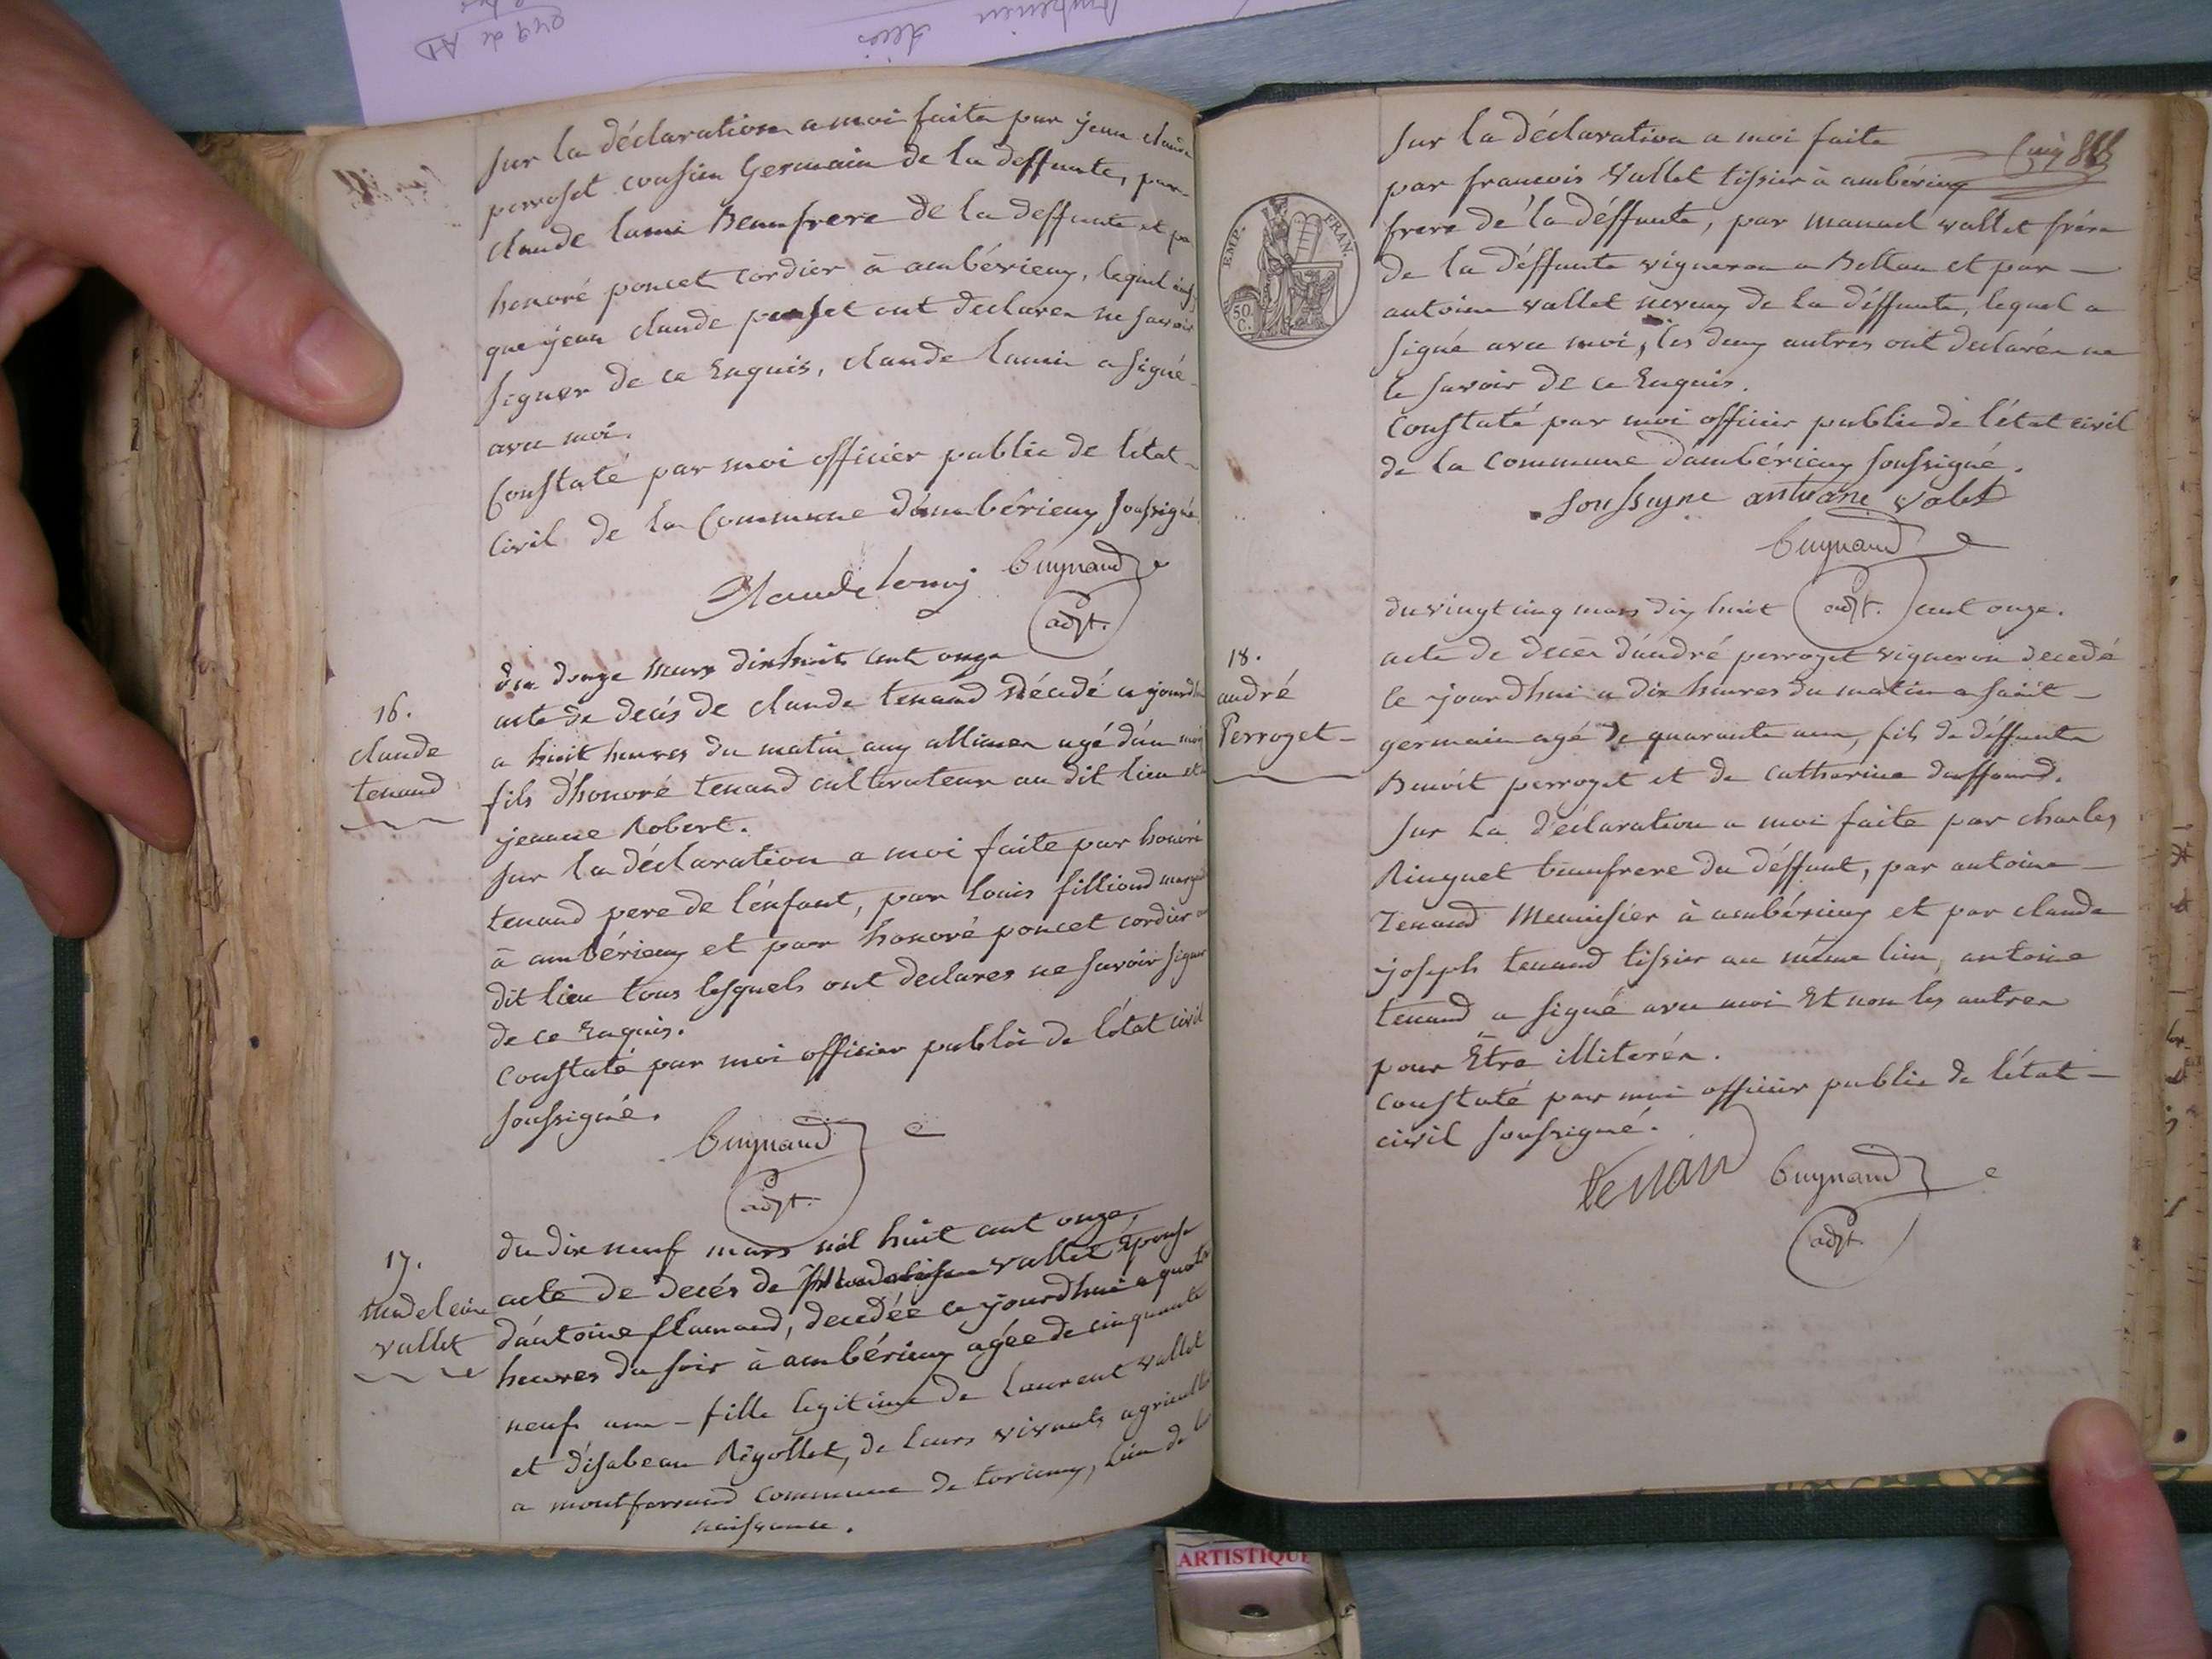 sur la déclaration a moi faite par jean claude
perroset cousin Germain de la deffunte, par
claude lami Beaufrere de la deffunte et par
honoré poncet cordier à ambérieux, lequel ainsi
que jean claude ont declarer ne savoir
signer de ce Enquis, claude lamin a signé
avec moi.
Constaté par moi officier public de létat
Civil de la Commune d'ambérieux soussigné.
Claude lamy Guynand
adjt.
du douze mars dix huit cent onze
16.
claude
tenand
acte de decés de claude tenand décédé ce jourdhui
a huit heures du matin aux allimes agé d'un mois
fils d'honoré tenand cultivateur au dit lieu et
jeanne Robert.
sur la déclaration a moi faite par honoré
tenand pere de l'énfant, par Louis filliond
à ambérieux et par honoré poncet cordier au
dit lieu tous lesquels ont declares ne savoir signer
de ce Enquis.
Constaté par moi officier public de l'état civil
soussigné.
Guynand
adjt.
17.
madeleine
vallet
du dix neuf mars mil huit cent onze,
acte de decés de vallet Epouse
d'antoine flamand, decedée ce jourdhui a quatre
heures du soir à ambérieux agée de cinquante
neuf ans - fille legitime de Laurent vallet
et d'isabeau Rigollet, de leurs vivants
a montferrand commune de torcieux, lieu de la
naissance.
sur la déclaration a moi faite
par francois Vallet tissier à ambérieux
frere de la déffunte, par manuel vallet frére
de la déffunte vigneron a Bettan et par
antoine vallet neveux de la déffunte, lequel a
signé avec moi, les deux autres ont declarés ne
le savoir de ce Enquis.
Constaté par moi officier public de l'état civil
de la Commune d'ambérieux soussigné.
soussigne antoine valet
Guynand
adjt.
EMP. FRAN.
50 C.
du vingt cinq mars dix huit cent onze.
18.
andré
Perroget
acte de decés d'andré perroget vigneron decedé
ce jourdhui a dix heures du matin a saint
germain agé de quarante ans, fils de déffunte
Benoit perroget et de catherine
sur La déclaration a moi faite par charles
Ringuet beaufrere du déffunt, par antoine
Tenand Menuisier à ambérieux et par claude
joseph tenand tissier au même lieu, antoine
tenand a signé avec moi Et non les autres
pour Être illiterés.
constaté par moi officier public de l'état
civil soussigné.
tenan Guynand
adjt.
ARTISTIQUE